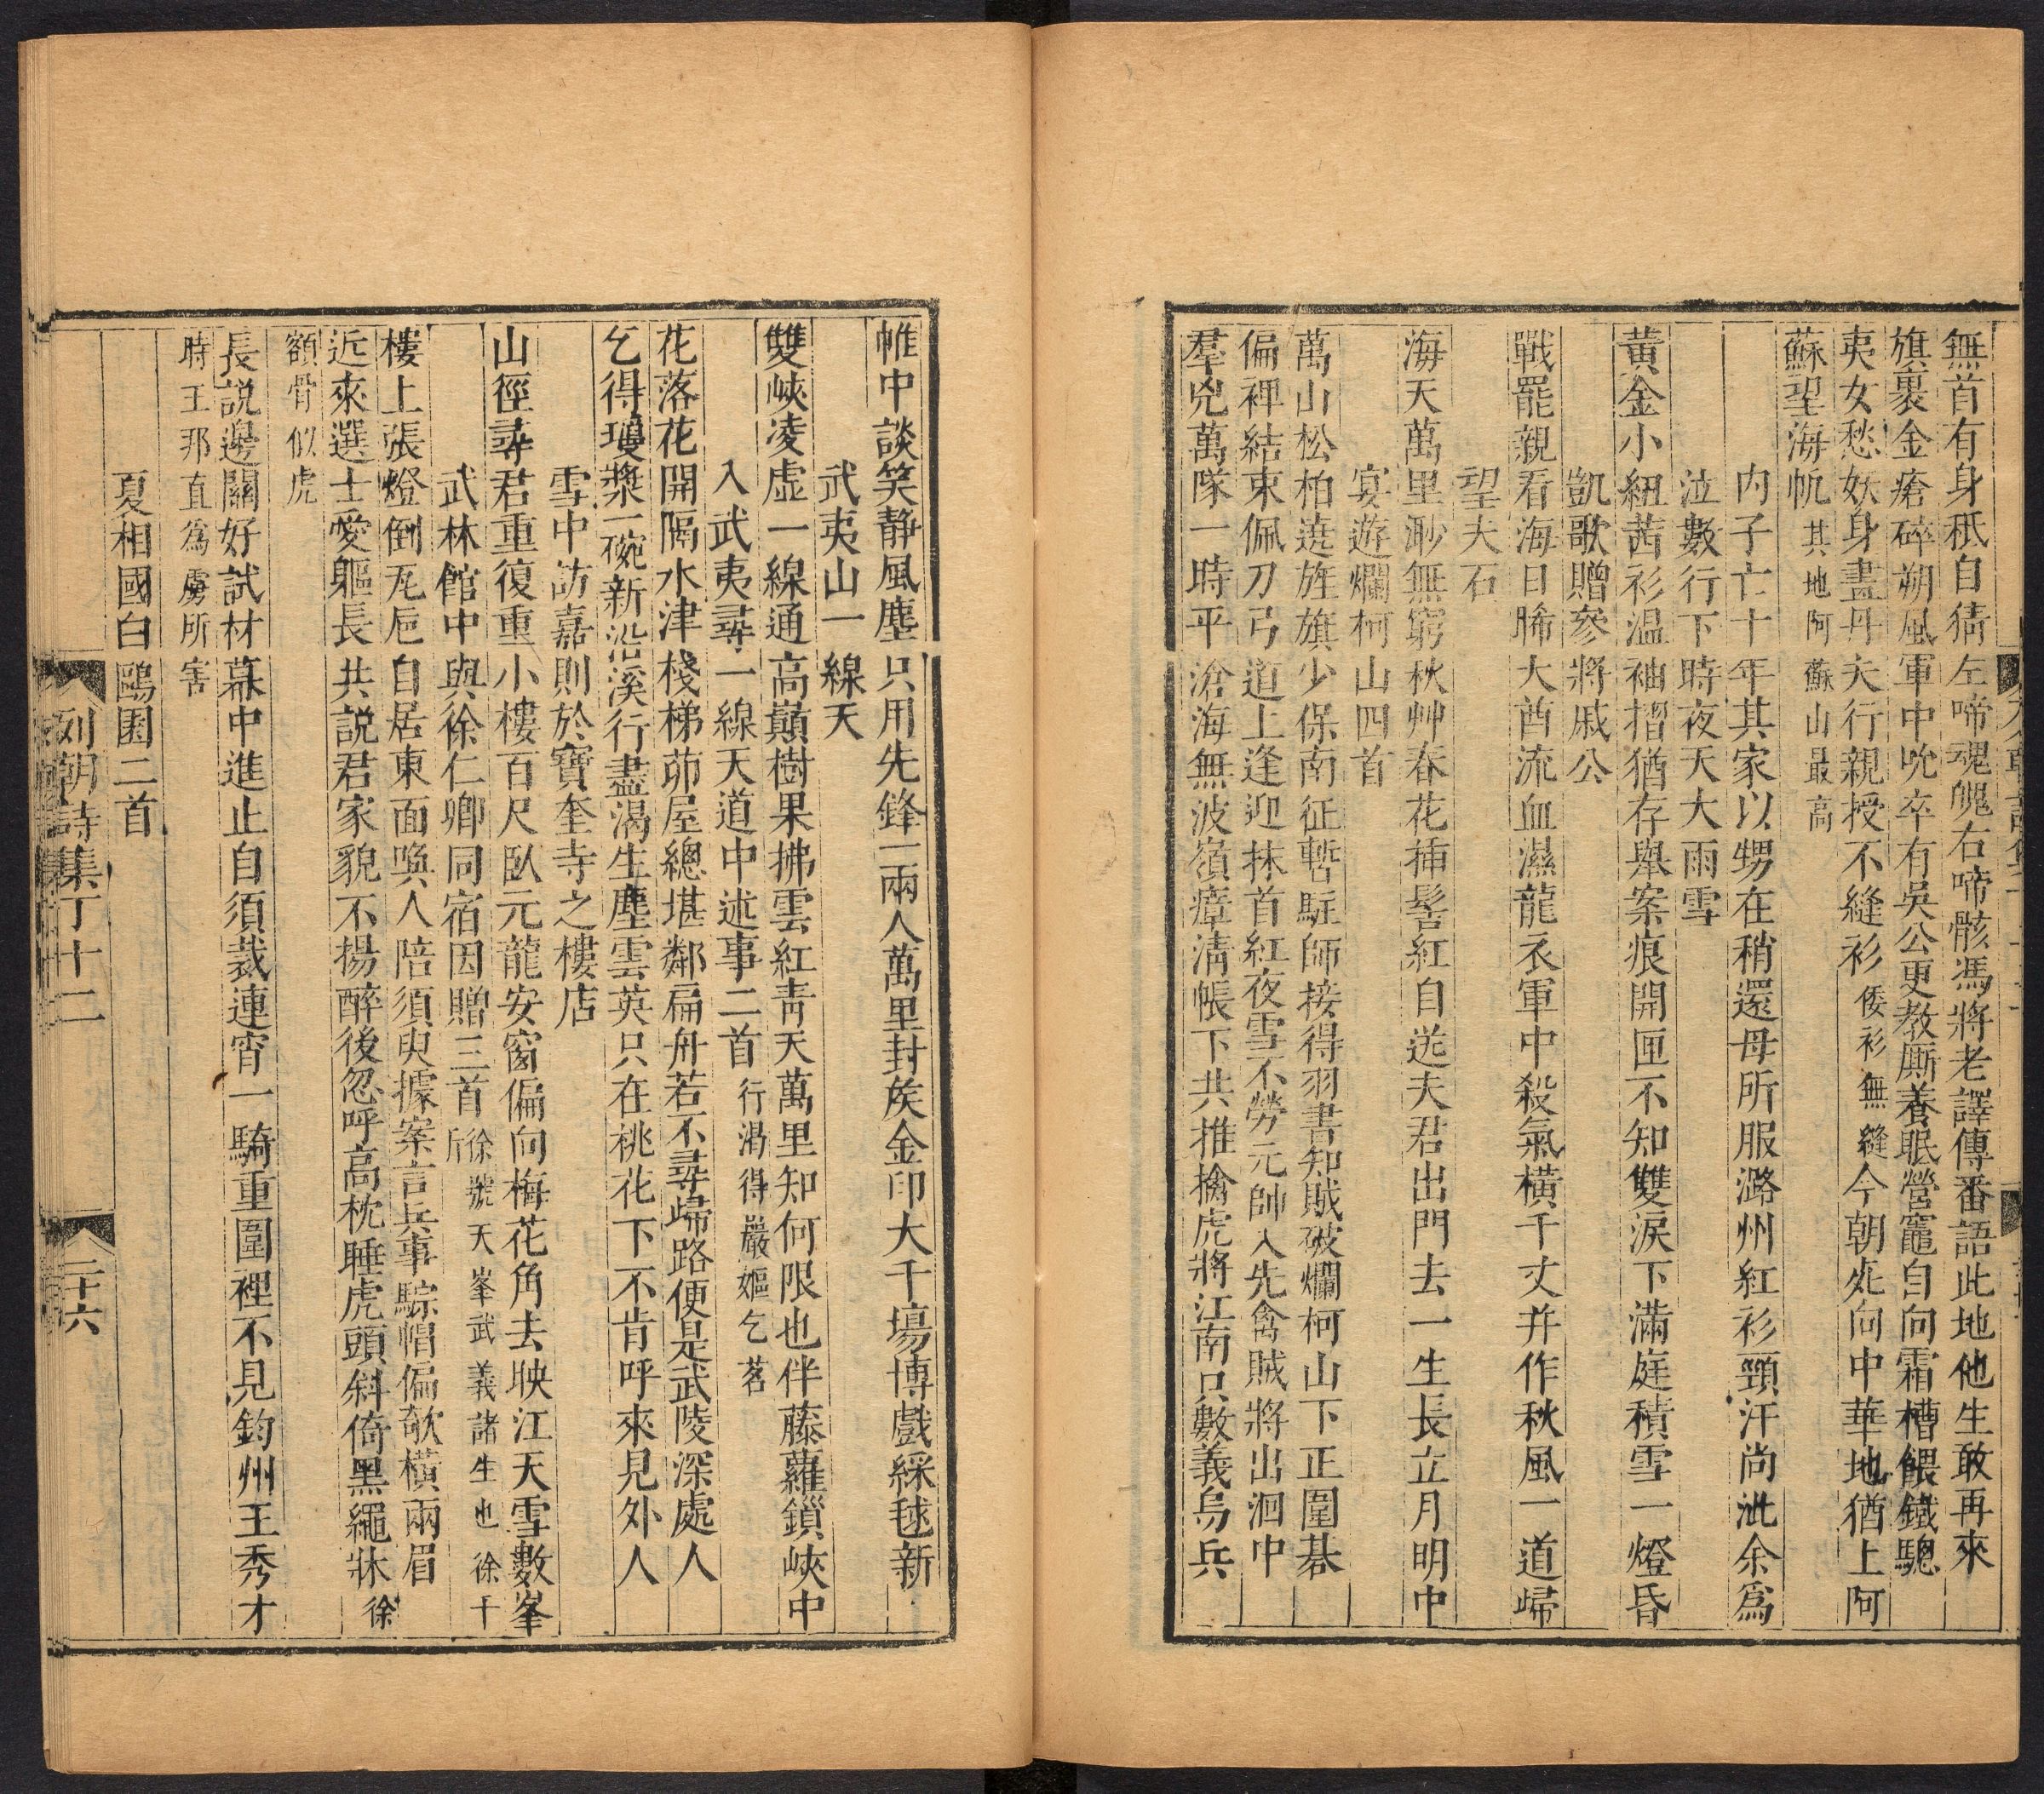 無首有身秖自猜左啼魂魄右啼骸馮將老譯傳番語此地他生敢再來
旗裹金瘡碎朔風軍中吮卒有吳公更教厮養眠營竈自向霜槽餵鐵驄
夷女愁妖身畫丹夫行親授不縫衫倭衫無縫今朝死向中華地猶上阿
蘇望海帆其地阿蘇山最高
内子亡十年其家以甥在稍還母所服潞州紅衫頸汗尚泚余爲
泣數行下時夜天大雨雪
黃金小紐茜衫温袖摺猶存舉案痕開匣不知雙淚下滿庭積雪一燈昏
凱歌贈參將戚公
戰罷親看海日晞大酋流血濕龍衣軍中殺氣橫千丈并作秋風一道歸
望夫石
海天萬里渺無窮秋艸春花揷髻紅自送夫君出門去一生長立月明中
宴遊爛柯山四首
萬山松柏遶旌旗少保南征暫駐師接得羽書知賊破爛柯山下正圍碁
偏裨結束佩刀弓道上逢迎抹首紅夜雪不勞元帥入先禽賊將出洄中
羣兇萬隊一時平滄海無波嶺瘴淸帳下共推擒虎將江南只數義烏兵
帷中談笑靜風塵只用先鋒一兩人萬里封矦金印大千塲博戲綵毬新
武夷山一線天
雙峽凌虚一線通高巔樹果拂雲紅靑天萬里知何限也伴藤蘿鎖峽中
入武夷尋一線天道中述事二首行渴得巖嫗乞茗
花落花開隔水津棧梯茆屋總堪鄰扁舟若不尋歸路便是武陵深處人
乞得瓊漿一碗新沿溪行盡渴生塵雲英只在桃花下不肯呼來見外人
雪中訪嘉則於寶奎寺之樓店
山徑尋君重復重小樓百尺臥元龍安窗偏向梅花角去映江天雪數峯
武林館中與徐仁卿同宿因贈三首徐號天峯武義諸生也徐干斤
樓上張燈倒玉巵自居東面喚人陪須臾據案言兵事騌帽偏欹橫兩眉
近來選士愛軀長共説君家貌不揚醉後忽呼高枕睡虎頭斜倚黑繩牀徐
額骨似虎
長説邊關好試材幕中進止自須裁連宵一騎重圍裡不見鈞州王秀才
時王那直爲虜所害
夏相國白鷗園二首
列朝詩集丁十二
二十六